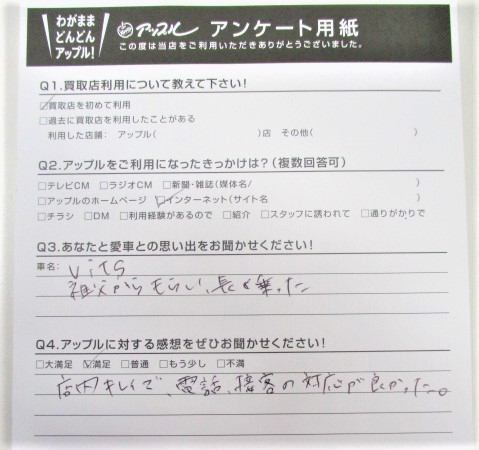 わがまま
どんどん
アップル!
アップル アンケート用紙
この度は当店をご利用いただきありがとうございました。
Q1.買取店利用について教えて下さい!
☑買取店を初めて利用
□過去に買取店を利用したことがある
利用した店舗: アップル( )店 その他( )
Q2.アップルをご利用になったきっかけは?(複数回答可)
□テレビCM □ラジオCM □新聞・雑誌(媒体名/ )
□アップルのホームページ ☑インターネット(サイト名 )
□チラシ □DM □利用経験があるので □紹介 □スタッフに誘われて □通りがかりで
Q3.あなたと愛車との思い出をお聞かせください!
車名: vits
祖父からもらい、長く乗った
Q4.アップルに対する感想をぜひお聞かせください!
□大満足 ☑満足 □普通 □もう少し □不満
店内キレイで、電話、接客の対応が良かった。